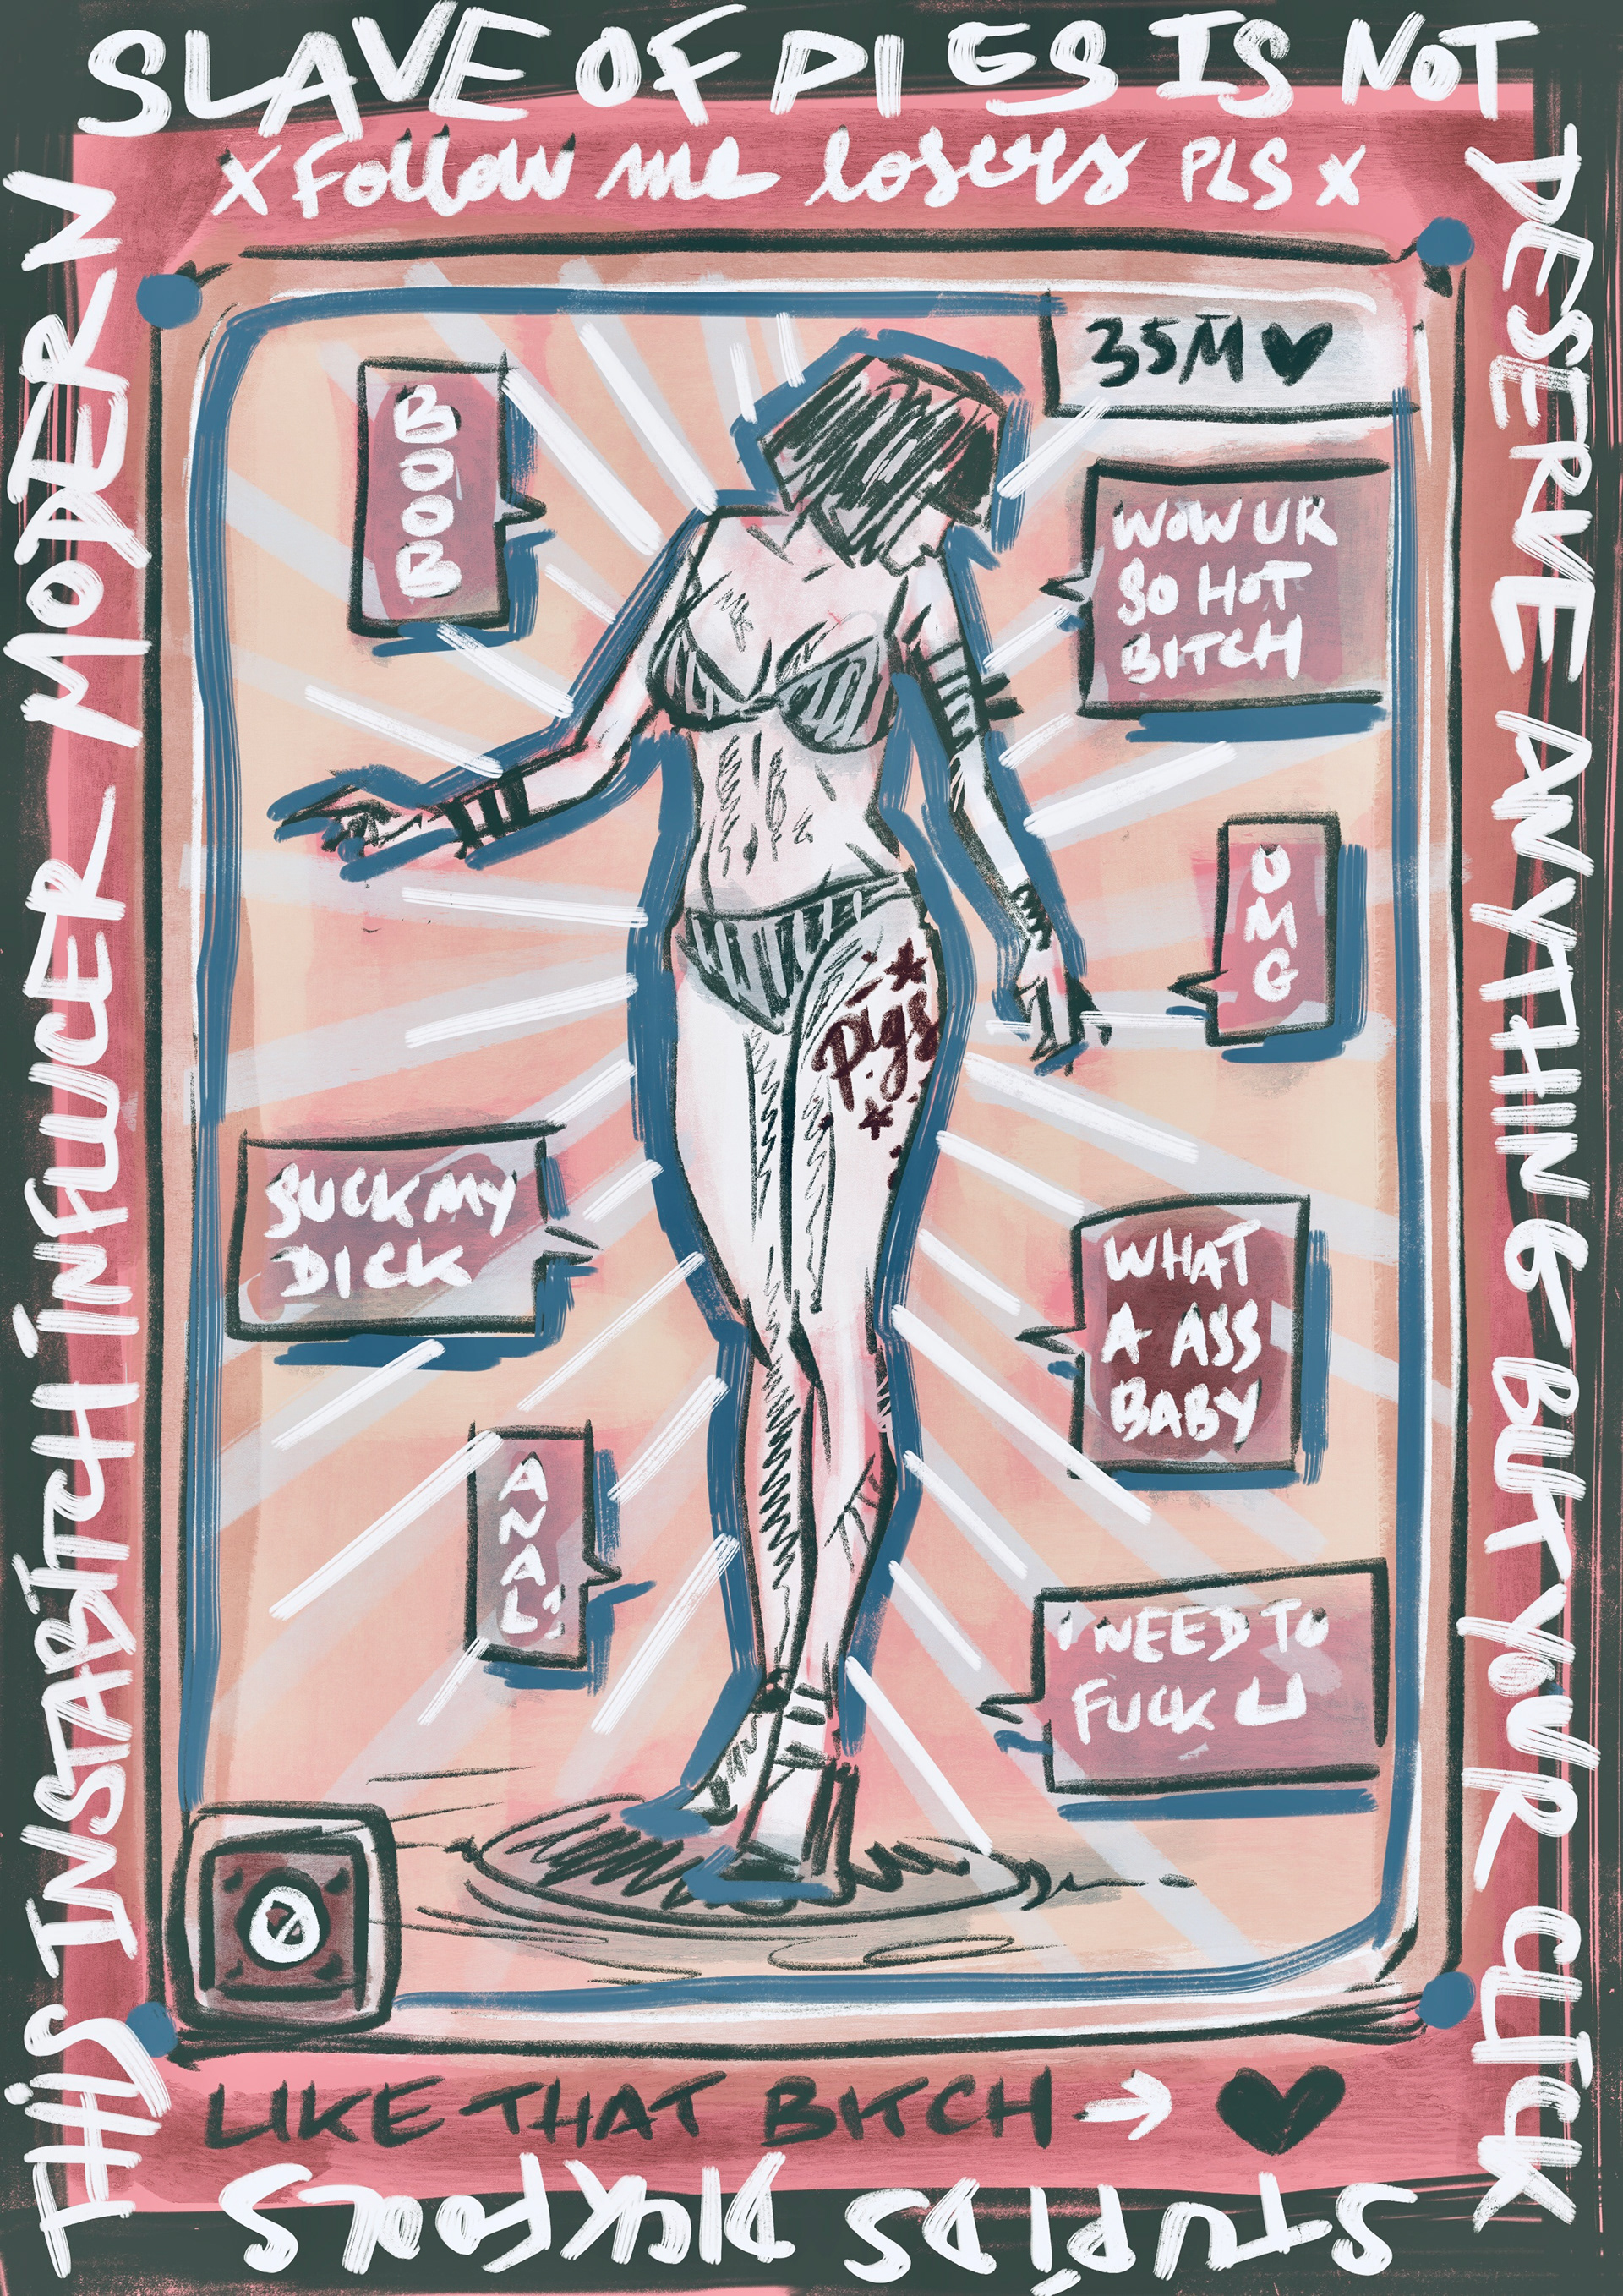 THIS INSTABITCH INFLUCER MODERN
SLAVE OF PIGS IS NOT
DESERVE ANYTHING BUT YOUR CLICK
STUPIDS DICKFOOLS
x Follow me losers PLS x
35M
BOOB
WOW UR
SO HOT
BITCH
OMG
Pigs
SUCK MY
DICK
WHAT
A ASS
BABY
ANAL!
I NEED TO
FUCK U
LIKE THAT BITCH